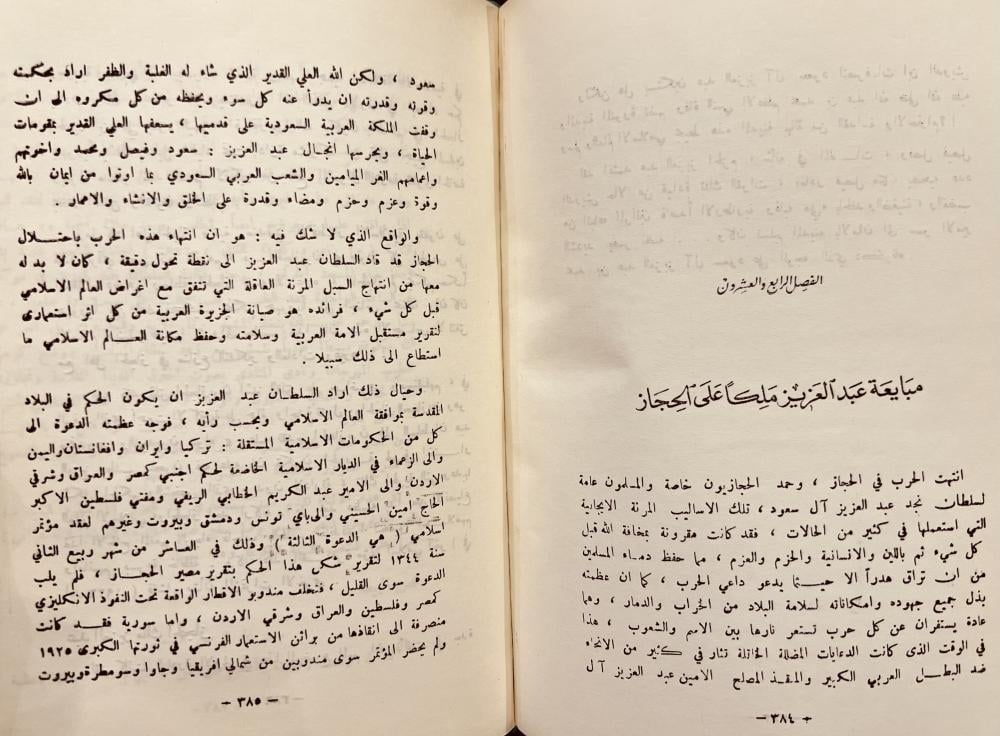 الفصل الرابع والعشرون
مبايعة عبد العزيز ملكاً على الحجاز
انتهت الحرب في الحجاز ، وحمد الحجازيون خاصة والمسلمون عامة
لسلطان نجد عبد العزيز آل سعود ، تلك الاساليب المرنة الايجابية
التي استعملها في كثير من الحالات ، فقد كانت مقرونة بمخافة الله قبل
كل شيء ثم باللين والانسانية والحزم والعزم ، مما حفظ دماء المسلمين
من ان تراق هدراً الا حيثما يدعو داعي الحرب ، كما ان عظمته
بذل جميع جهوده وامكاناته لسلامة البلاد من الخراب والدمار ، وهما
عادة يستقران عن كل حرب تستعر نارها بين الاسم والشعوب ، هذا
في الوقت الذى كانت الدعايات المضللة الخاتلة تثار في كثير من الانحاء
ضد البطل العربي الكبير والمنقذ المصلح الامين عبد العزيز آل
– ٣٨٤ –
سعود ، ولكن الله العلي القدير الذي شاء له الغلبة والظفر اراد بحكمته
وقوته وقدرته ان يدرأ عنه كل سوء ويحفظه من كل مكروه الى ان
وقفت المملكة العربية السعودية على قدميها ، يسعفها العلي القدير بمقومات
الحياة ، ويحرسها انجال عبد العزيز : سعود وفيصل ومحمد واخوتهم
واعمامهم الغر الميامين والشعب العربي السعودي بما اوتوا من ايمان بالله
وقوة وعزم وحزم ومضاء وقدرة على الخلق والانشاء والاعمار .
والواقع الذي لا شك فيه : هو ان انتهاء هذه الحرب باحتلال
الحجاز قد قاد السلطان عبد العزيز الى نقطة تحول دقيقة ، كان لا بد له
معها من انتهاج السبل المرنة العاقلة التي تتفق مع اغراض العالم الاسلامي
قبل كل شيء ، فرائده هو صيانة الجزيرة العربية من كل اثر استعمارى
لتقرير مستقبل الامة العربية وسلامته وحفظ مكانة العالم الاسلامي ما
استطاع الى ذلك سبيلا .
وحيال ذلك اراد السلطان عبد العزيز ان يكون الحكم في البلاد
المقدسة بموافقة العالم الاسلامي وبحسب رأيه ، فوجه عظمته الدعوة الى
كل من الحكومات الاسلامية المستقلة : تركيا وايران وافغانستان واليمن
والى الزعماء في الديار الاسلامية الخاضعة لحكم اجنبي كمصر والعراق وشرقي
الاردن والى الامير عبد الكريم الخطابي الريفي ومفتي فلسطين الاكبر
الحاج أمين الحسيني والى باي تونس ودمشق وبيروت وغيرهم لعقد مؤتمر
اسلامي ( هي الدعوة الثالثة ) وذلك في العاشر من شهر ربيع الثاني
سنة ١٣٤٤ لتقرير شكل هذا الحكم بتقرير مصير الحجاز ، فلم يلب
الدعوة سوى القليل ، فتخلف مندوبو الاقطار الواقعة تحت النفوذ الانكليزي
كمصر وفلسطين والعراق وشرقي الاردن ، واما سورية فقد كانت
منصرفة الى انقاذها من براثن الاستعمار الفرنسي في ثورتها الكبرى ١٩٢٥
ولم يحضر المؤتمر سوى مندوبين من شمالي افريقيا وجاوا وسومطرة وبيروت
– ٣٨٥ –